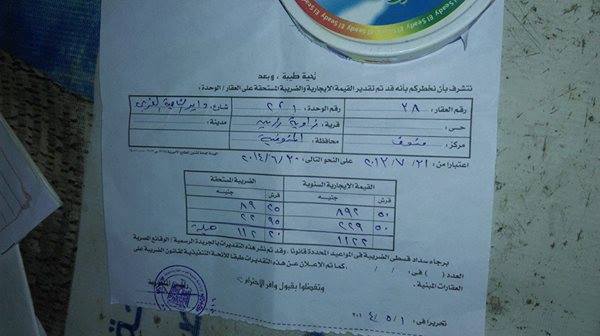 El Seady El Seady El Seady El Seady
تحية طيبة ، وبعد
نتشرف بأن نخطركم بأنه قد تم تقدير القيمة الإيجارية والضريبة المستحقة على العقار / الوحدة :
رقم العقار : ٣٨ رقم الوحدة : ٢٢١ شارع : داير الناحية الغربى
حى : قرية : زاوية رزين مدينة :
مركز : منوف محافظة : المنوفية
اعتبارا من : ٢٠١٣/٧/١ على النحو التالى : ٢٠١٤/٦/٣٠
القيمة الإيجارية السنوية الضريبة المستحقة
قرش جنيه قرش جنيه
٥٠ ٨٩٢ ٢٥ ٨٩
٥٠ ٢٢٩ ٩٥ ٢٢
١١٢٢ ٢٠ ١١٢
برجاء سداد قسطى الضريبة فى المواعيد المحددة قانونا . وقد تم نشر هذه التقديرات بالجريدة الرسمية / الوقائع المصرية
العدد ( ) فى : / / . كما تم الإعلان عن هذه التقديرات طبقا للائحة التنفيذية لقانون الضريبة على
العقارات المبنية .
وتفضلوا بقبول وافر الاحترام ،
تحريرا فى : ٢٠١٤/٥/١